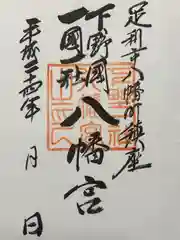 足利市八幡町鎮座
下野國
一國社
八幡宮
平成二十四年 月 日